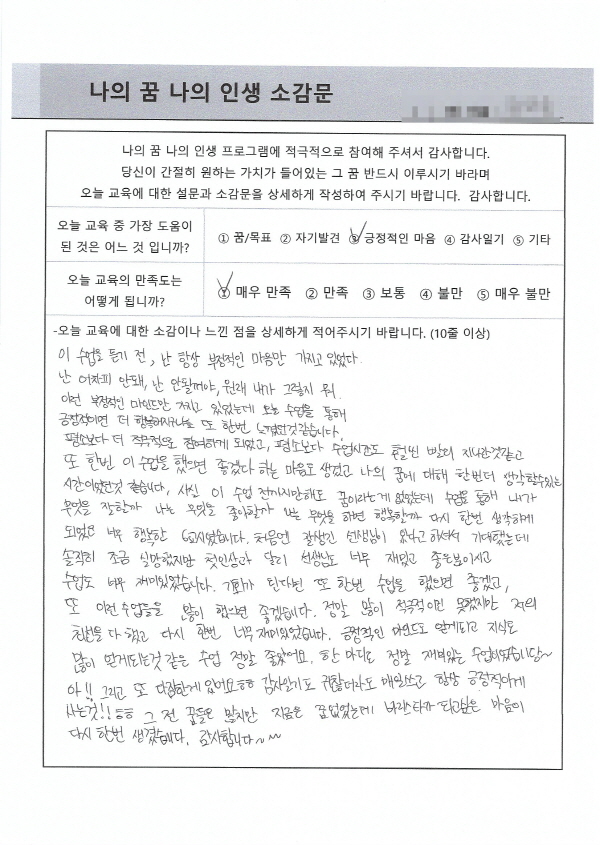 나의 꿈 나의 인생 소감문
나의 꿈 나의 인생 프로그램에 적극적으로 참여해 주셔서 감사합니다.
당신이 간절히 원하는 가치가 들어있는 그 꿈 반드시 이루시기 바라며
오늘 교육에 대한 설문과 소감문을 상세하게 작성하여 주시기 바랍니다. 감사합니다.
오늘 교육 중 가장 도움이
된 것은 어느 것 입니까?
① 꿈/목표 ② 자기발견 ③ 긍정적인 마음 ④ 감사일기 ⑤ 기타
오늘 교육의 만족도는
어떻게 됩니까?
① 매우 만족 ② 만족 ③ 보통 ④ 불만 ⑤ 매우 불만
-오늘 교육에 대한 소감이나 느낀 점을 상세하게 적어주시기 바랍니다. (10줄 이상)
이 수업을 듣기 전, 난 항상 부정적인 마음만 가지고 있었다.
난 어차피 안돼, 난 안될꺼야, 원래 내가 그렇지 뭐.
이런 부정적인 마인드만 가지고 있었는데 오늘 수업을 통해
긍정적이면 더 행복해지는 또 한번 느꼈던것같습니다.
평소보다 더 적극적으로 참여하게 되었고, 평소보다 수업시간도 훨씬 빨리 지나간것같고
또 한번 이 수업을 했으면 좋겠다 하는 마음도 생겼고 나의 꿈에 대해 한번더 생각할수있는
시간이었던것 같습니다. 사실 이 수업 전까지만해도 꿈이라는게 없었는데 수업을 통해 내가
무엇을 잘할까 나는 무엇을 좋아할까 나는 무엇을 하면 행복할까 다시 한번 생각하게
되었고 너무 행복한 6교시였습니다. 처음엔 잘생긴 선생님이 왔다고 하셔서 기대했는데
솔직히 조금 실망했지만 첫인상과 달리 선생님도 너무 재밌고 좋은분이시고
수업도 너무 재미있었습니다. 기회가 된다면 또 한번 수업을 했으면 좋겠고,
또 이런 수업들을 많이 했으면 좋겠습니다. 정말 많이 적극적이진 못했지만 저의
최선을 다 했고 다시 한번 너무 재미있었습니다. 긍정적인 마인드도 얻게되고 지식도
많이 얻게되는것 같은 수업 정말 좋았어요. 한 마디로 정말 재미있는 수업이었습니당~
아!! 그리고 또 다짐한게 있어요ㅎㅎ 감사일기도 귀찮더라도 매일쓰고 항상 긍정적이게
사는것!! ㅎㅎ 그 전 꿈들은 많지만 지금은 꿈 없었는데 되고싶은 마음이
다시 한번 생겼습니다. 감사합니다~~